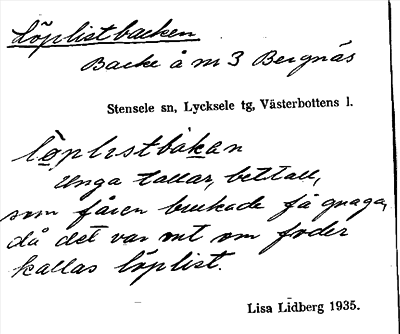 Löplistbacken
Backe å m 3 Bergnäs
Stensele sn, Lycksele tg, Västerbottens l.
löplistbakan
Unga tallar, bettall,
som fåren brukade få gnaga,
då det var ont om foder
kallas löplist.
Lisa Lidberg 1935.